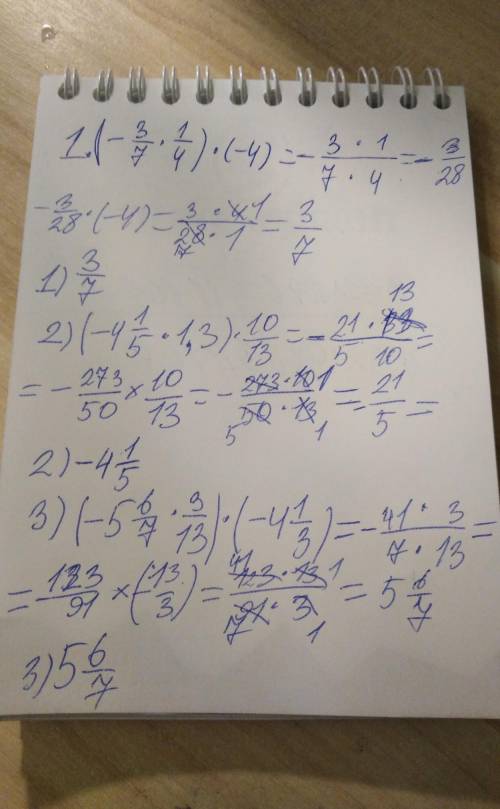 1. (-3/7 · 1/4) · (-4) = -(3 · 1)/(7 · 4) = -3/28
-3/28 · (-4) = (3 · 4 1)/(28 7 · 1) = 3/7
1) 3/7
2) (-4 1/5 · 1,3) · 10/13 = -(21 · 13)/(5 10) =
= -273/50 × 10/13 = -(273 · 10 1)/(50 5 · 13 1) = 21/5 =
2) -4 1/5
3) (-5 6/7 · 3/13) · (-4 1/3) = -(41 · 3)/(7 · 13) =
= 123/91 × (-13/3) = (41 123 · 13 1)/(7 91 · 3 1) = 5 6/7
3) 5 6/7